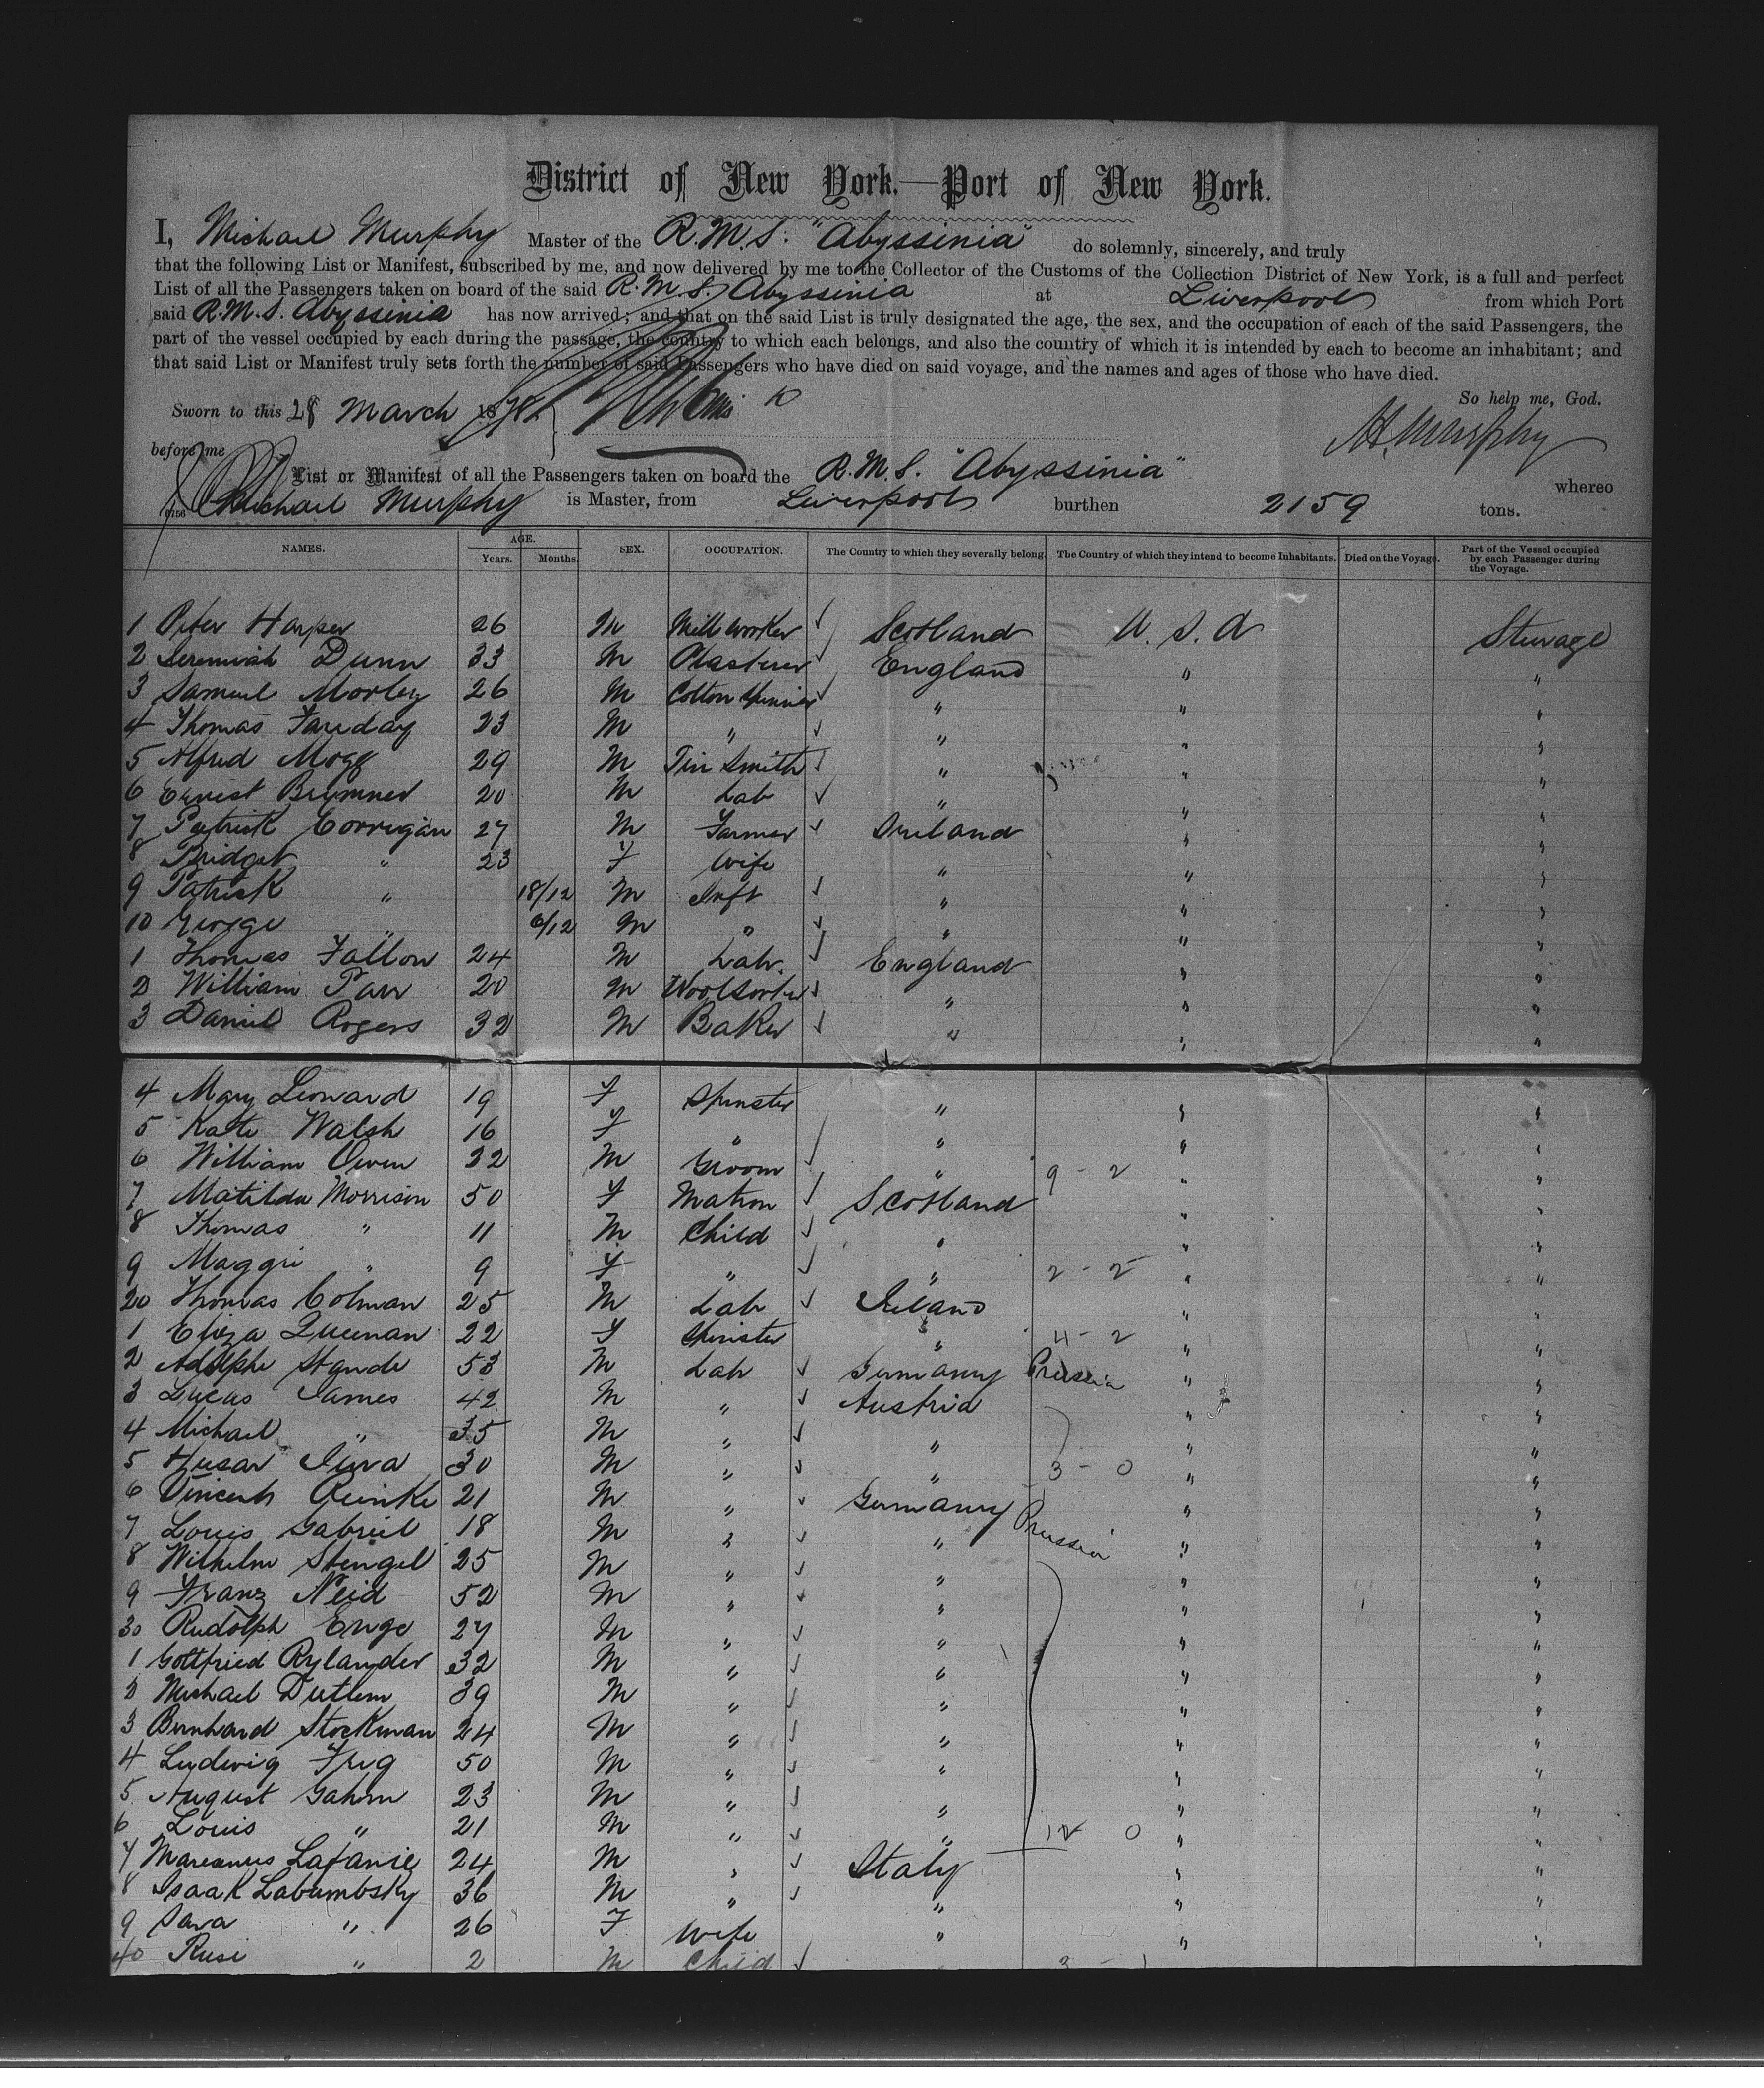 District of New York.—Port of New York.
I, Michael Murphy Master of the R.M.S. "Abyssinia" do solemnly, sincerely, and truly
that the following List or Manifest, subscribed by me, and now delivered by me to the Collector of the Customs of the Collection District of New York, is a full and perfect
List of all the Passengers taken on board of the said R.M.S. Abyssinia at Liverpool from which Port
said R.M.S. Abyssinia has now arrived; and that on the said List is truly designated the age, the sex, and the occupation of each of the said Passengers, the
part of the vessel occupied by each during the passage, the country to which each belongs, and also the country of which it is intended by each to become an inhabitant; and
that said List or Manifest truly sets forth the number of said Passengers who have died on said voyage, and the names and ages of those who have died.
So help me, God.
Sworn to this 28 March 187
M. Murphy
before me
List or Manifest of all the Passengers taken on board the R.M.S. "Abyssinia" whereo
Michael Murphy is Master, from Liverpool burthen 2159 tons.
NAMES. AGE. Years. Months. SEX. OCCUPATION. The Country to which they severally belong. The Country of which they intend to become Inhabitants. Died on the Voyage. Part of the Vessel occupied by each Passenger during the Voyage.
1 Peter Harper 26 M Mill worker Scotland U.S.A Steerage
2 Jeremiah Dunn 33 M Plasterer England " "
3 Samuel Morley 26 M Cotton Spinner " " "
4 Thomas Fareday 23 M " " " "
5 Alfred Mogg 29 M Tin Smith " " "
6 Ernest Brymner 20 M Lab " " "
7 Patrick Corrigan 27 M Farmer Ireland " "
8 Bridget " 23 F Wife " " "
9 Patrick " 18/12 M Inft " " "
10 George " 6/12 M " " " "
1 Thomas Fallow 24 M Labr. England " "
2 William Parr 20 M Woolsorter " " "
3 Daniel Rogers 32 M Baker " " "
4 Mary Leonard 19 F Spinster " " "
5 Kate Walsh 16 F " " " "
6 William Owen 32 M Groom " 9 - 2 " "
7 Matilda Morrison 50 F Matron Scotland " "
8 Thomas " 11 M Child " " "
9 Maggie " 9 F " " 2 - 2 " "
20 Thomas Colman 25 M Labr Ireland " "
1 Eliza Queenan 22 F Spinster " 4 - 2 " "
2 Adolphe Stande 53 M Labr Germany Prussia " "
3 Lucas James 42 M " Austria " "
4 Michael " 35 M " " " "
5 Husar Jura 30 M " " 3 - 0 " "
6 Vincent Reinke 21 M " Germany Prussia " "
7 Louis Gabriel 18 M " " " "
8 Wilhelm Stengel 25 M " " " "
9 Franz Neid 52 M " " " "
30 Rudolph Enge 27 M " " " "
1 Gottfried Rylander 32 M " " " "
2 Michael Dutlem 39 M " " " "
3 Bernhard Stockman 24 M " " " "
4 Ludwig Freg 50 M " " " "
5 August Gahm 23 M " " " "
6 Louis " 21 M " " 12 0 " "
7 Mareanus Lafanie 24 M " Italy " "
8 Isaak Labumbsky 36 M " " " "
9 Sara " 26 F Wife " " "
40 Rusi " 2 M Child